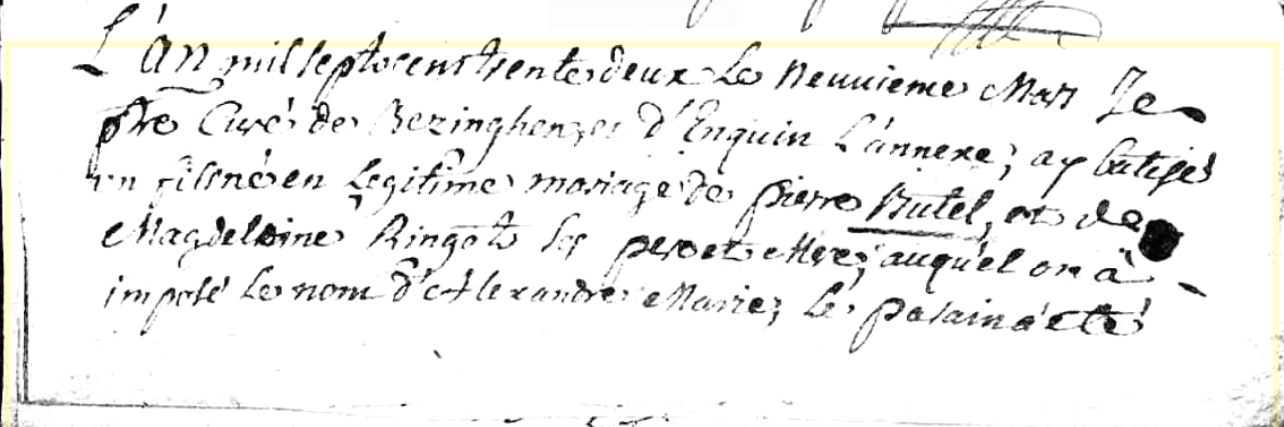 L'An mil sept cent trente deux Le Neuvieme Mars Je
ptre Curé de Bezinghen, et d'Enquin L'annexe, ay batisé
un fils né en Legitime mariage de pierre Butel, et de
Magdeleine Ringot ses pere et Mere; auquel on à
imposé Le nom d'Alexandre Marie; Le parain a été